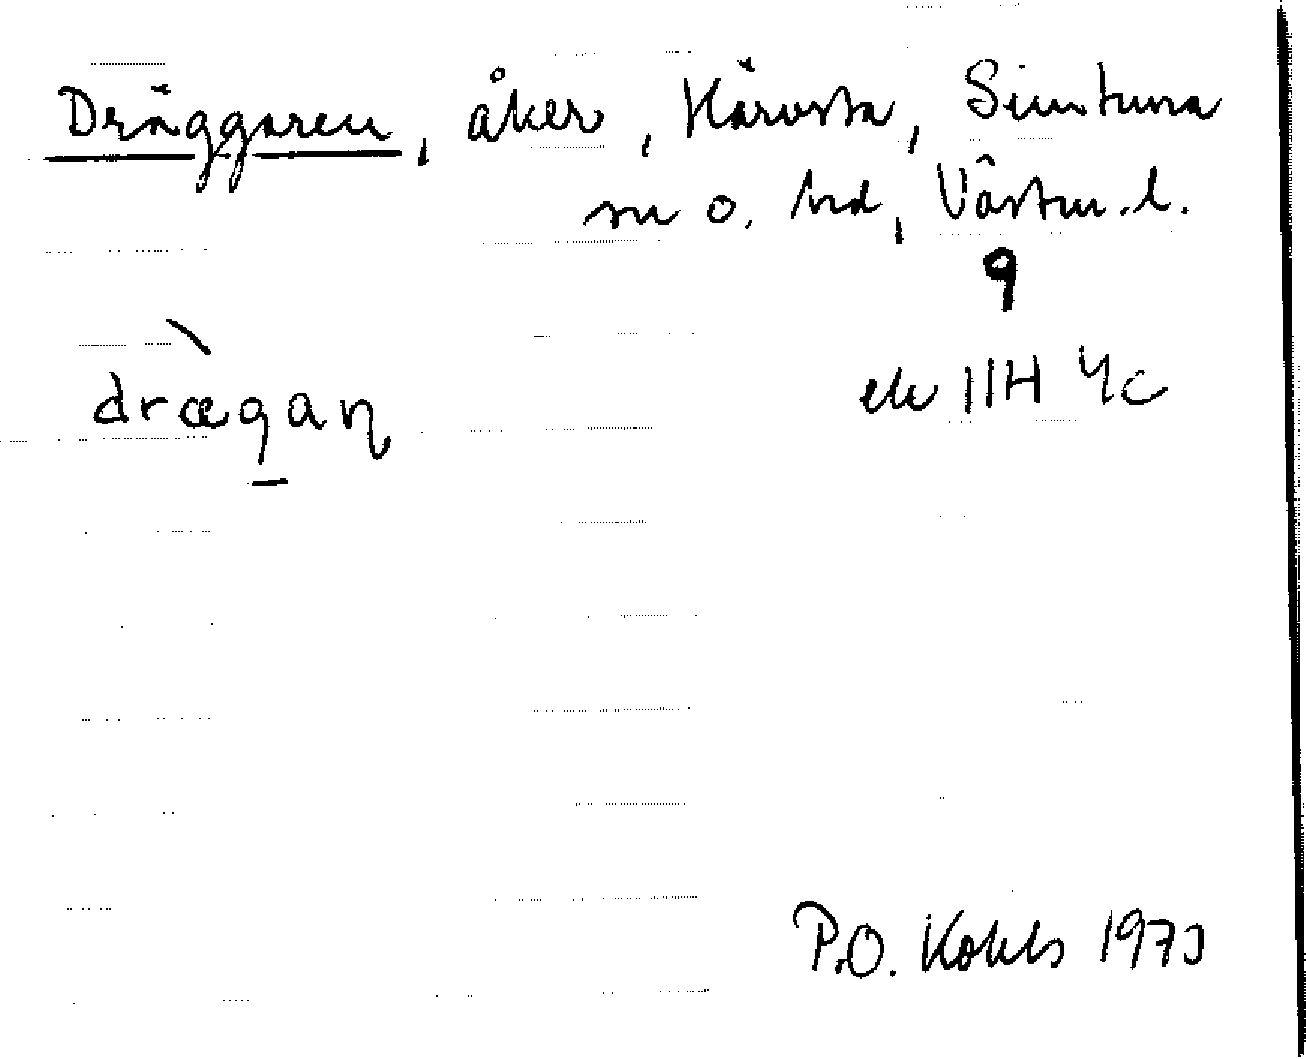 Dräggaren, åker, Härvsta, Simtuna
sn o. hd, Västm. l.
9
drægaɳ
ek 11H 4c
P.O. Kohls 1973